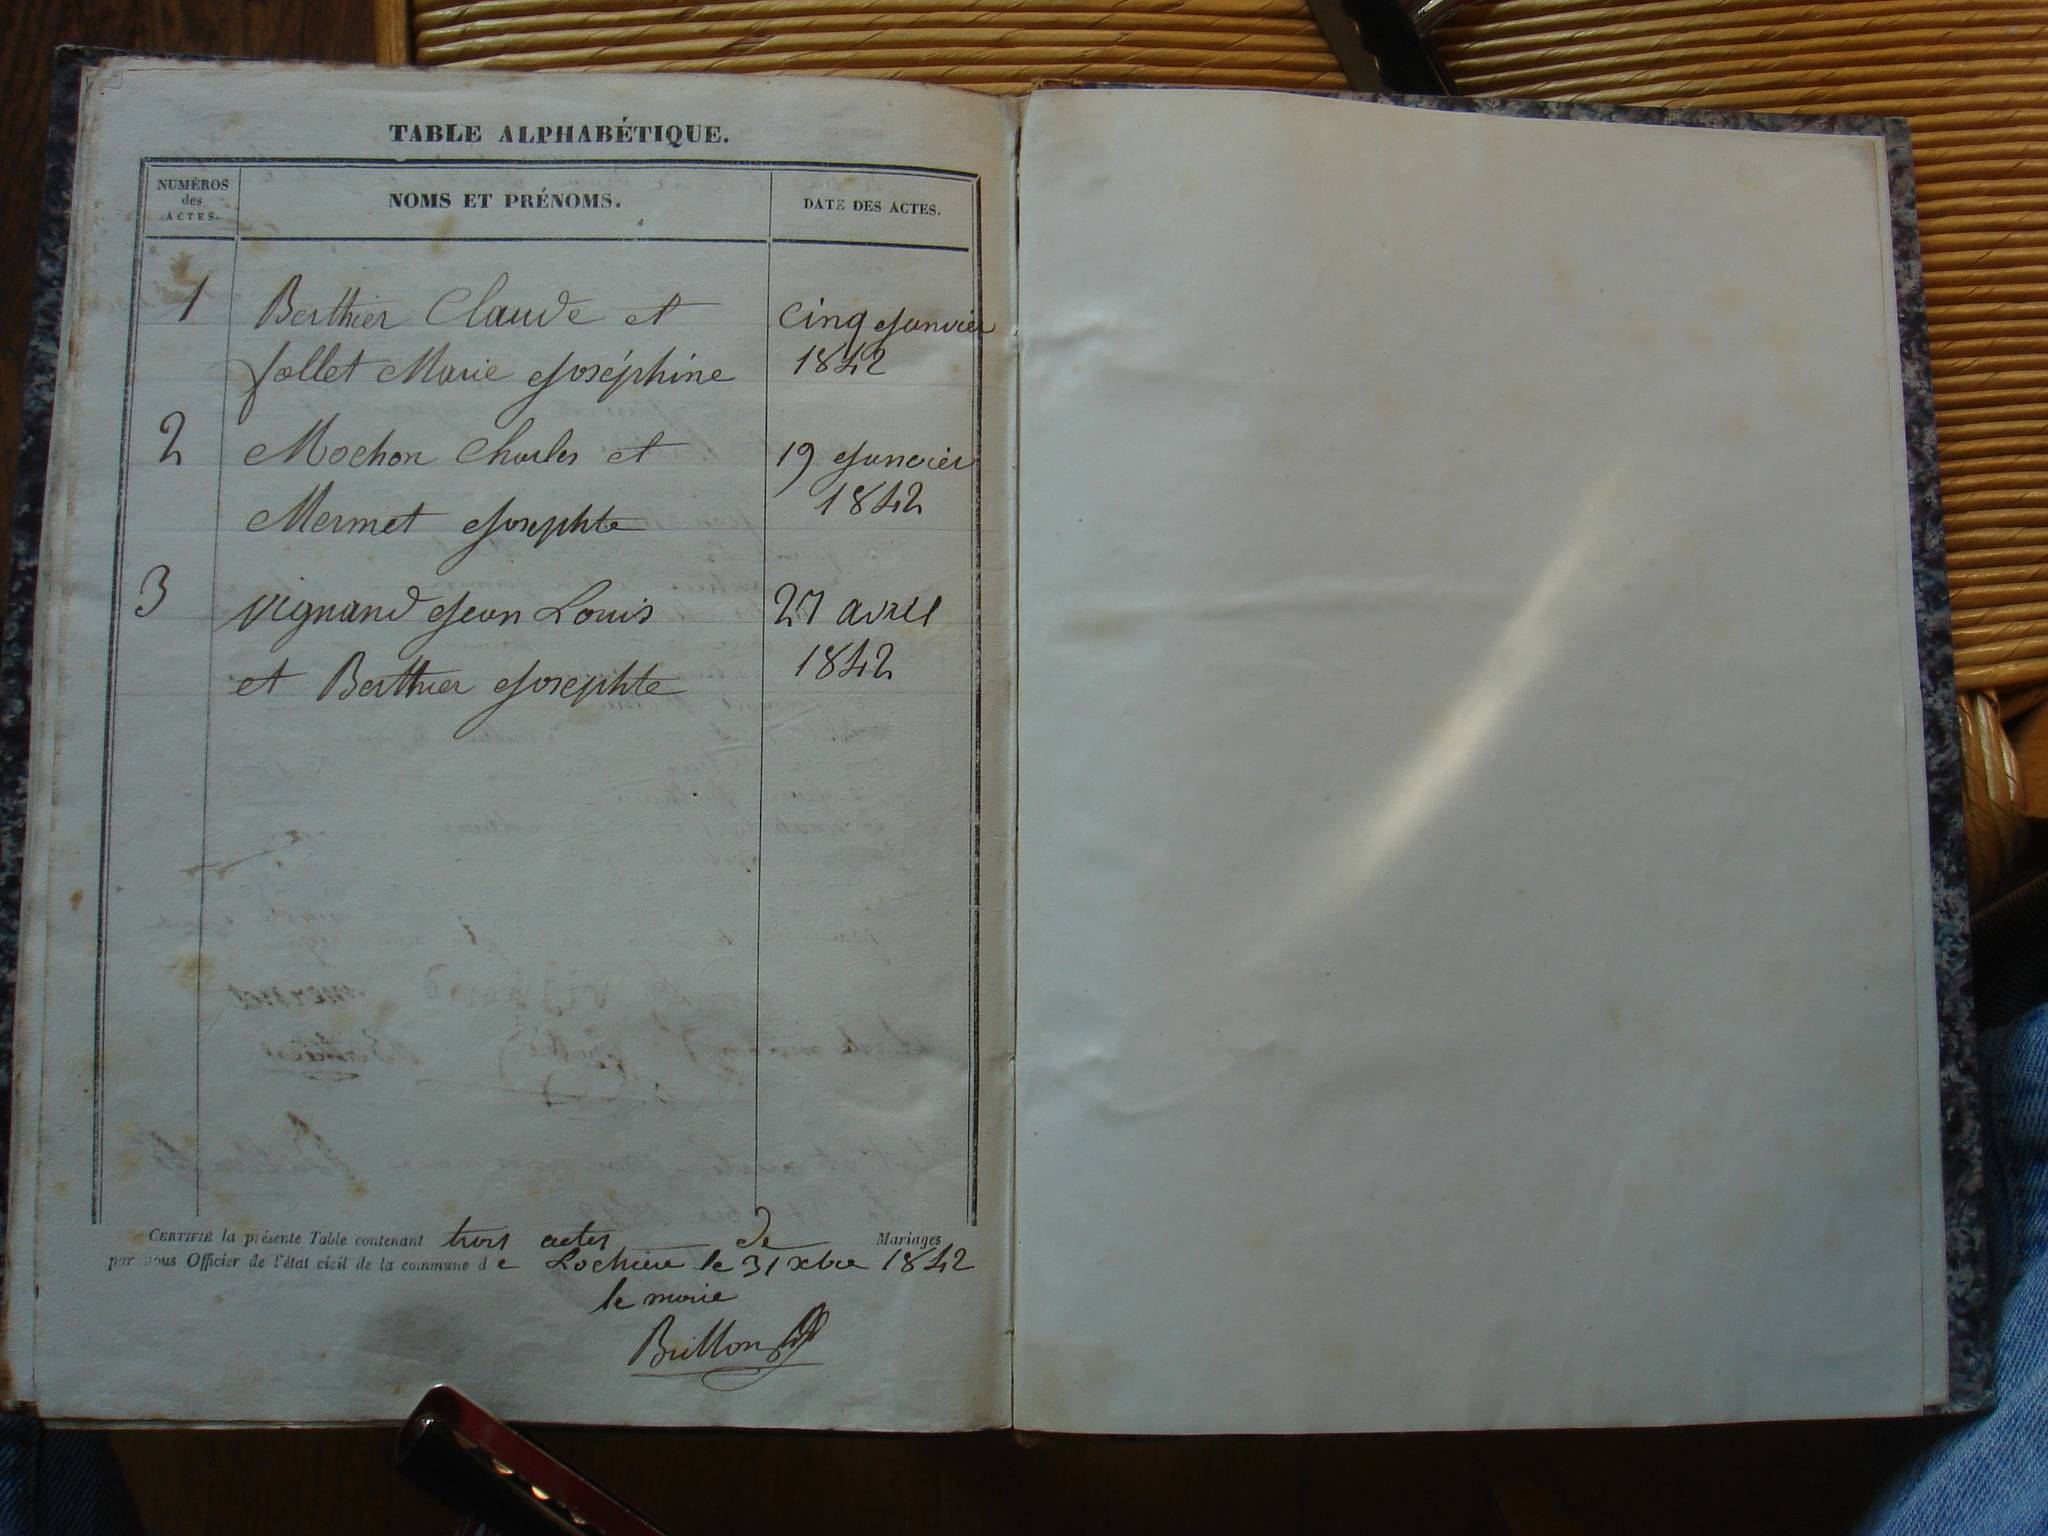 TABLE ALPHABÉTIQUE.
NUMÉROS
des
ACTES.
NOMS ET PRÉNOMS.
DATE DES ACTES.
1
Berthier Claude et
cinq Janvier
Jollet Marie Joséphine
1842
2
Mochon Charles et
19 Janvier
Mermet Josephte
1842
3
Vignand Jean Louis
27 avril
et Berthier Josephte
1842
CERTIFIÉ la présente Table contenant trois actes de Mariages
par nous Officier de l'état civil de la commune de Lochieu le 31 xbre 1842
le maire
Brillon